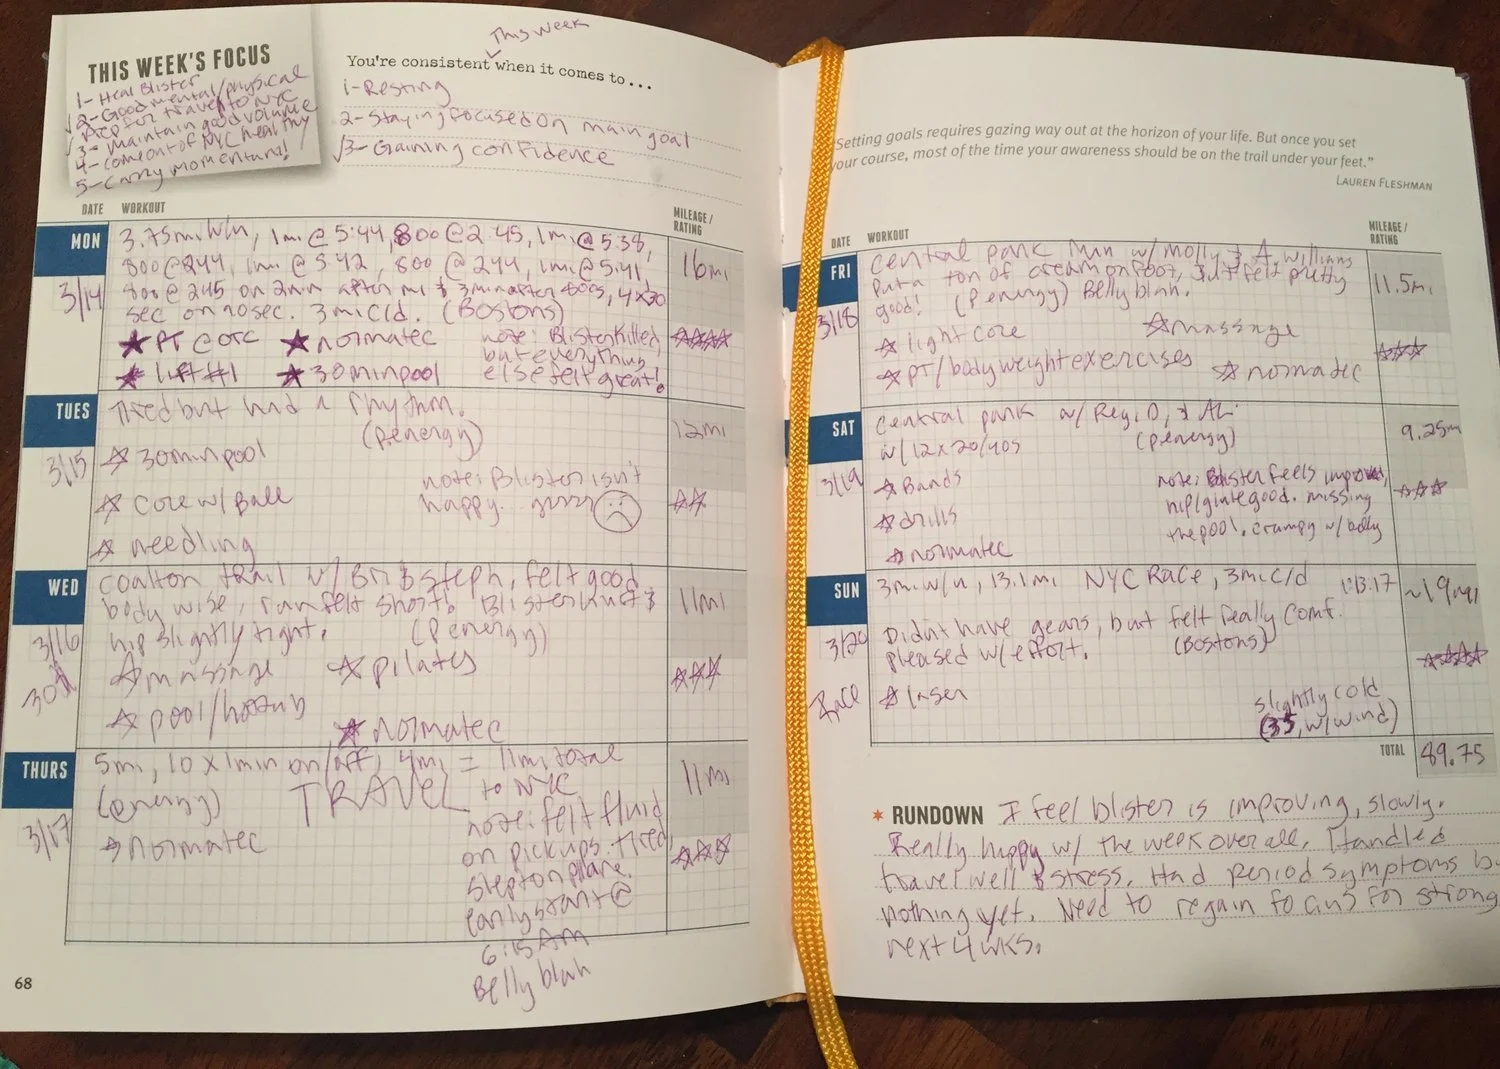 THIS WEEK'S FOCUS
1- Heal Blister
√2- Good mental/physical
prep for travel to NYC
√3- maintain good volume
4- come out of NYC healthy
5- carry momentum!
This week
You're consistent when it comes to...
1- Resting
2- Staying focused on main goal
√3- Gaining confidence
DATE WORKOUT MILEAGE / RATING
MON
3/14
3.75mi w/u, 1mi @ 5:44, 800 @ 2:45, 1mi @ 5:38,
800 @ 244, 1mi @ 5:42, 800 @ 244, 1mi @ 5:41,
800 @ 245 on 2min after mi & 3min after 800s, 4x20
sec on 40sec. 3mi c/d. (Bostons)
16mi
★ PT @ OTC ★ normatec
★ lift #1 ★ 30min pool
note: Blister killed,
but everything
else felt great!
☆☆☆☆
TUES
3/15
Tired but had a rhythm.
(P.energy)
12mi
☆ 30min pool
☆ core w/ Ball
☆ needling
note: Blister isn't
happy.
☆☆
WED
3/16
coalton trail w/ Bri & steph, felt good
body wise, run felt short! Blister hurt &
hip slightly tight. (P energy)
11mi
☆ massage ☆ pilates
☆ pool/hottub
★ normatec
☆☆☆
THURS
3/17
5mi, 10 x 1min on/off, 4mi = 11mi total
(P energy) TRAVEL to NYC
☆ normatec
11mi
note: felt fluid
on pickups. tired
slept on plane.
early start @
6:15AM
Belly blah
☆☆☆
68
"Setting goals requires gazing way out at the horizon of your life. But once you set
your course, most of the time your awareness should be on the trail under your feet."
LAUREN FLESHMAN
DATE WORKOUT MILEAGE / RATING
FRI
3/18
central park run w/ molly & A. williams
put a ton of cream on foot, but felt pretty
good! (P energy) Belly blah.
11.5mi
☆ light core ☆ massage
☆ PT/bodyweight exercises ☆ normatec
☆☆☆
SAT
3/19
central park w/ Reg, D, & Ali
w/ 12x20/40s (P energy)
9.25mi
☆ Bands
☆ drills
☆ normatec
note: Blister feels improved,
hip/glute good. missing
the pool. crampy w/ belly
☆☆☆
SUN
3/20
Race
3mi w/u, 13.1mi NYC Race, 3mi c/d 1:13:17
Didn't have gears, but felt really comf.
pleased w/ effort. (Bostons)
~19mi
☆ laser
slightly cold
(35, w/ wind)
☆☆☆☆
TOTAL 89.75
RUNDOWN I feel blister is improving, slowly.
Really happy w/ the week overall, Handled
travel well & stress. Had period symptoms b
nothing yet. Need to regain focus for strong
next 4 wks.